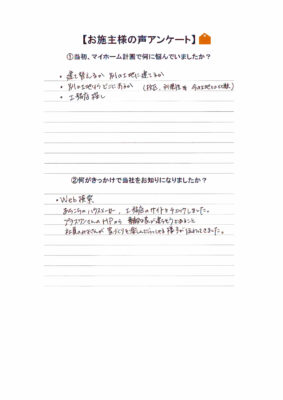 【お施主様の声アンケート】
①当初、マイホーム計画で何に悩んでいましたか？
・建て替えるか 別の土地に建てるか
・別の土地ならどこにするか (校区、利便性 今の土地との比較)
・工務店探し
②何がきっかけで当社をお知りになりましたか？
・Web検索
あちこちのハウスメーカー、工務店のサイトをチェックしました。
プラスワンさんのHPから 家が建ちそうであること
社員のみなさんが家づくりを楽しんでらっしゃる様子が伝わってきました。